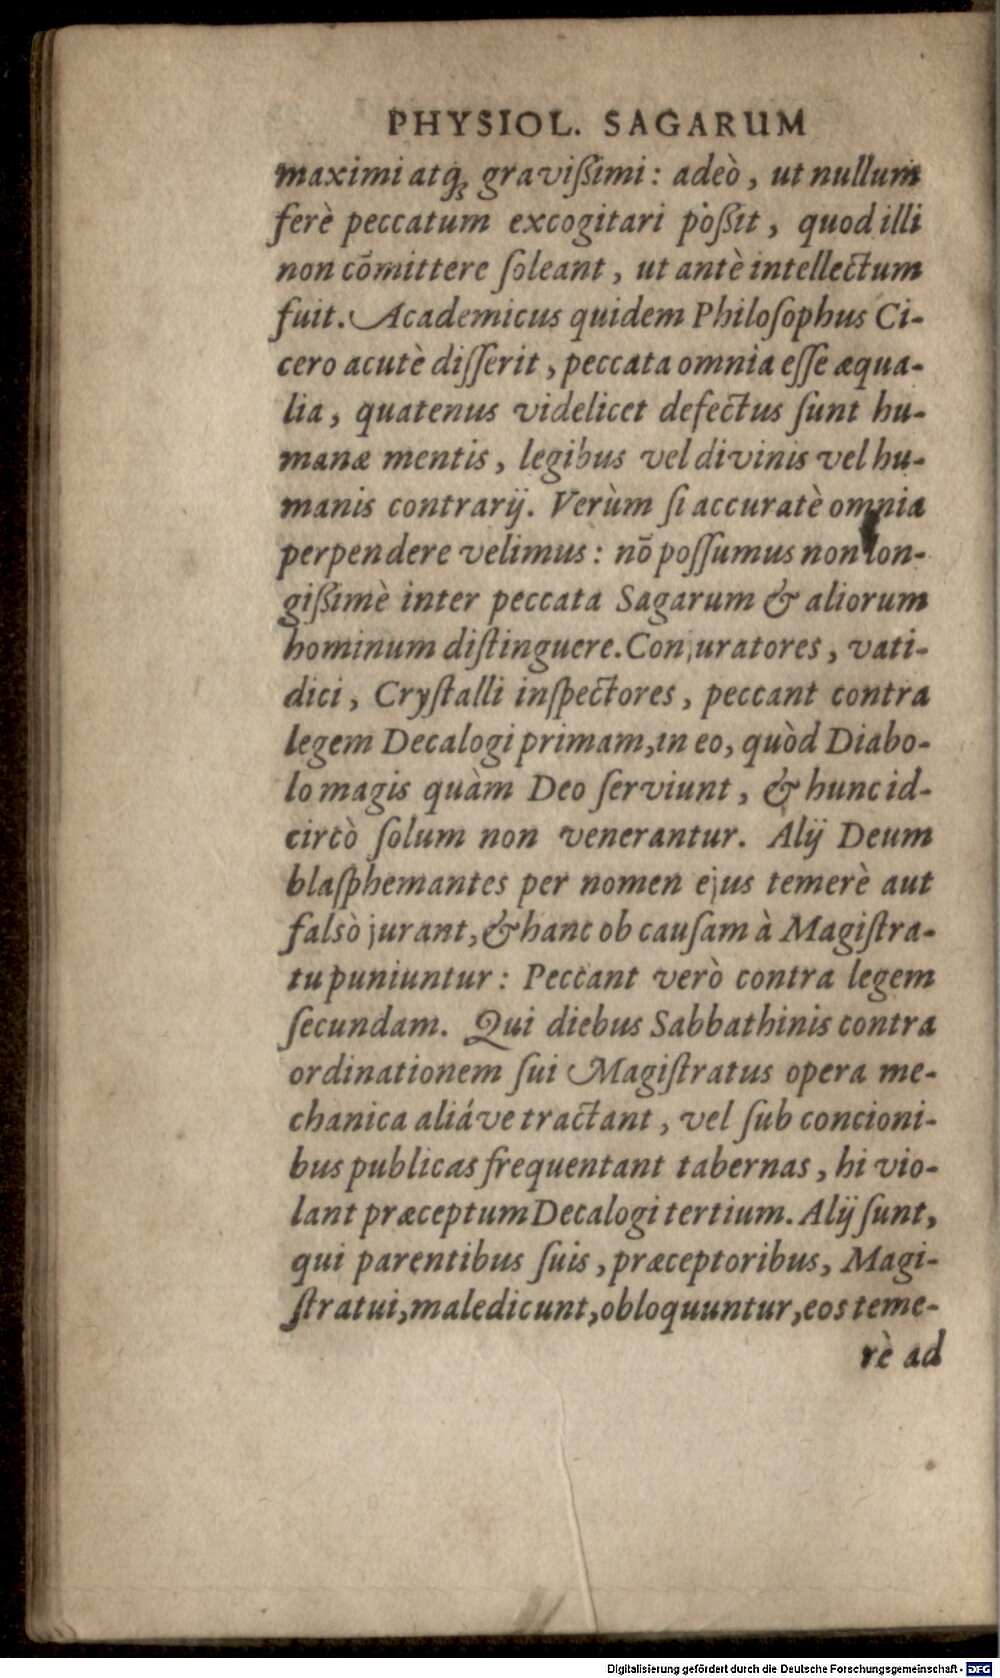 PHYSIOL. SAGARUM
maximi atq; gravißimi: adeò, ut nullum
ferè peccatum excogitari poßit, quod illi
non cōmittere ſoleant, ut antè intellectum
fuit. Academicus quidem Philoſophus Ci-
cero acutè diſſerit, peccata omnia eſſe æqua-
lia, quatenus videlicet defectus ſunt hu-
manæ mentis, legibus vel divinis vel hu-
manis contrarij. Verùm ſi accuratè omnia
perpendere velimus: nō poſſumus non lon-
gißimè inter peccata Sagarum & aliorum
hominum diſtinguere. Conjuratores, vati-
dici, Cryſtalli inſpectores, peccant contra
legem Decalogi primam, in eo, quòd Diabo-
lo magis quàm Deo ſerviunt, & hunc id-
circò ſolum non venerantur. Alij Deum
blaſphemantes per nomen ejus temerè aut
falsò jurant, & hanc ob cauſam à Magiſtra-
tu puniuntur: Peccant verò contra legem
ſecundam. Qui diebus Sabbathinis contra
ordinationem ſui Magiſtratus opera me-
chanica aliáve tractant, vel ſub concioni-
bus publicas frequentant tabernas, hi vio-
lant præceptum Decalogi tertium. Alij ſunt,
qui parentibus ſuis, præceptoribus, Magi-
ſtratui, maledicunt, obloquuntur, eos teme-
rè ad
Digitalisierung gefördert durch die Deutsche Forschungsgemeinschaft - DFG